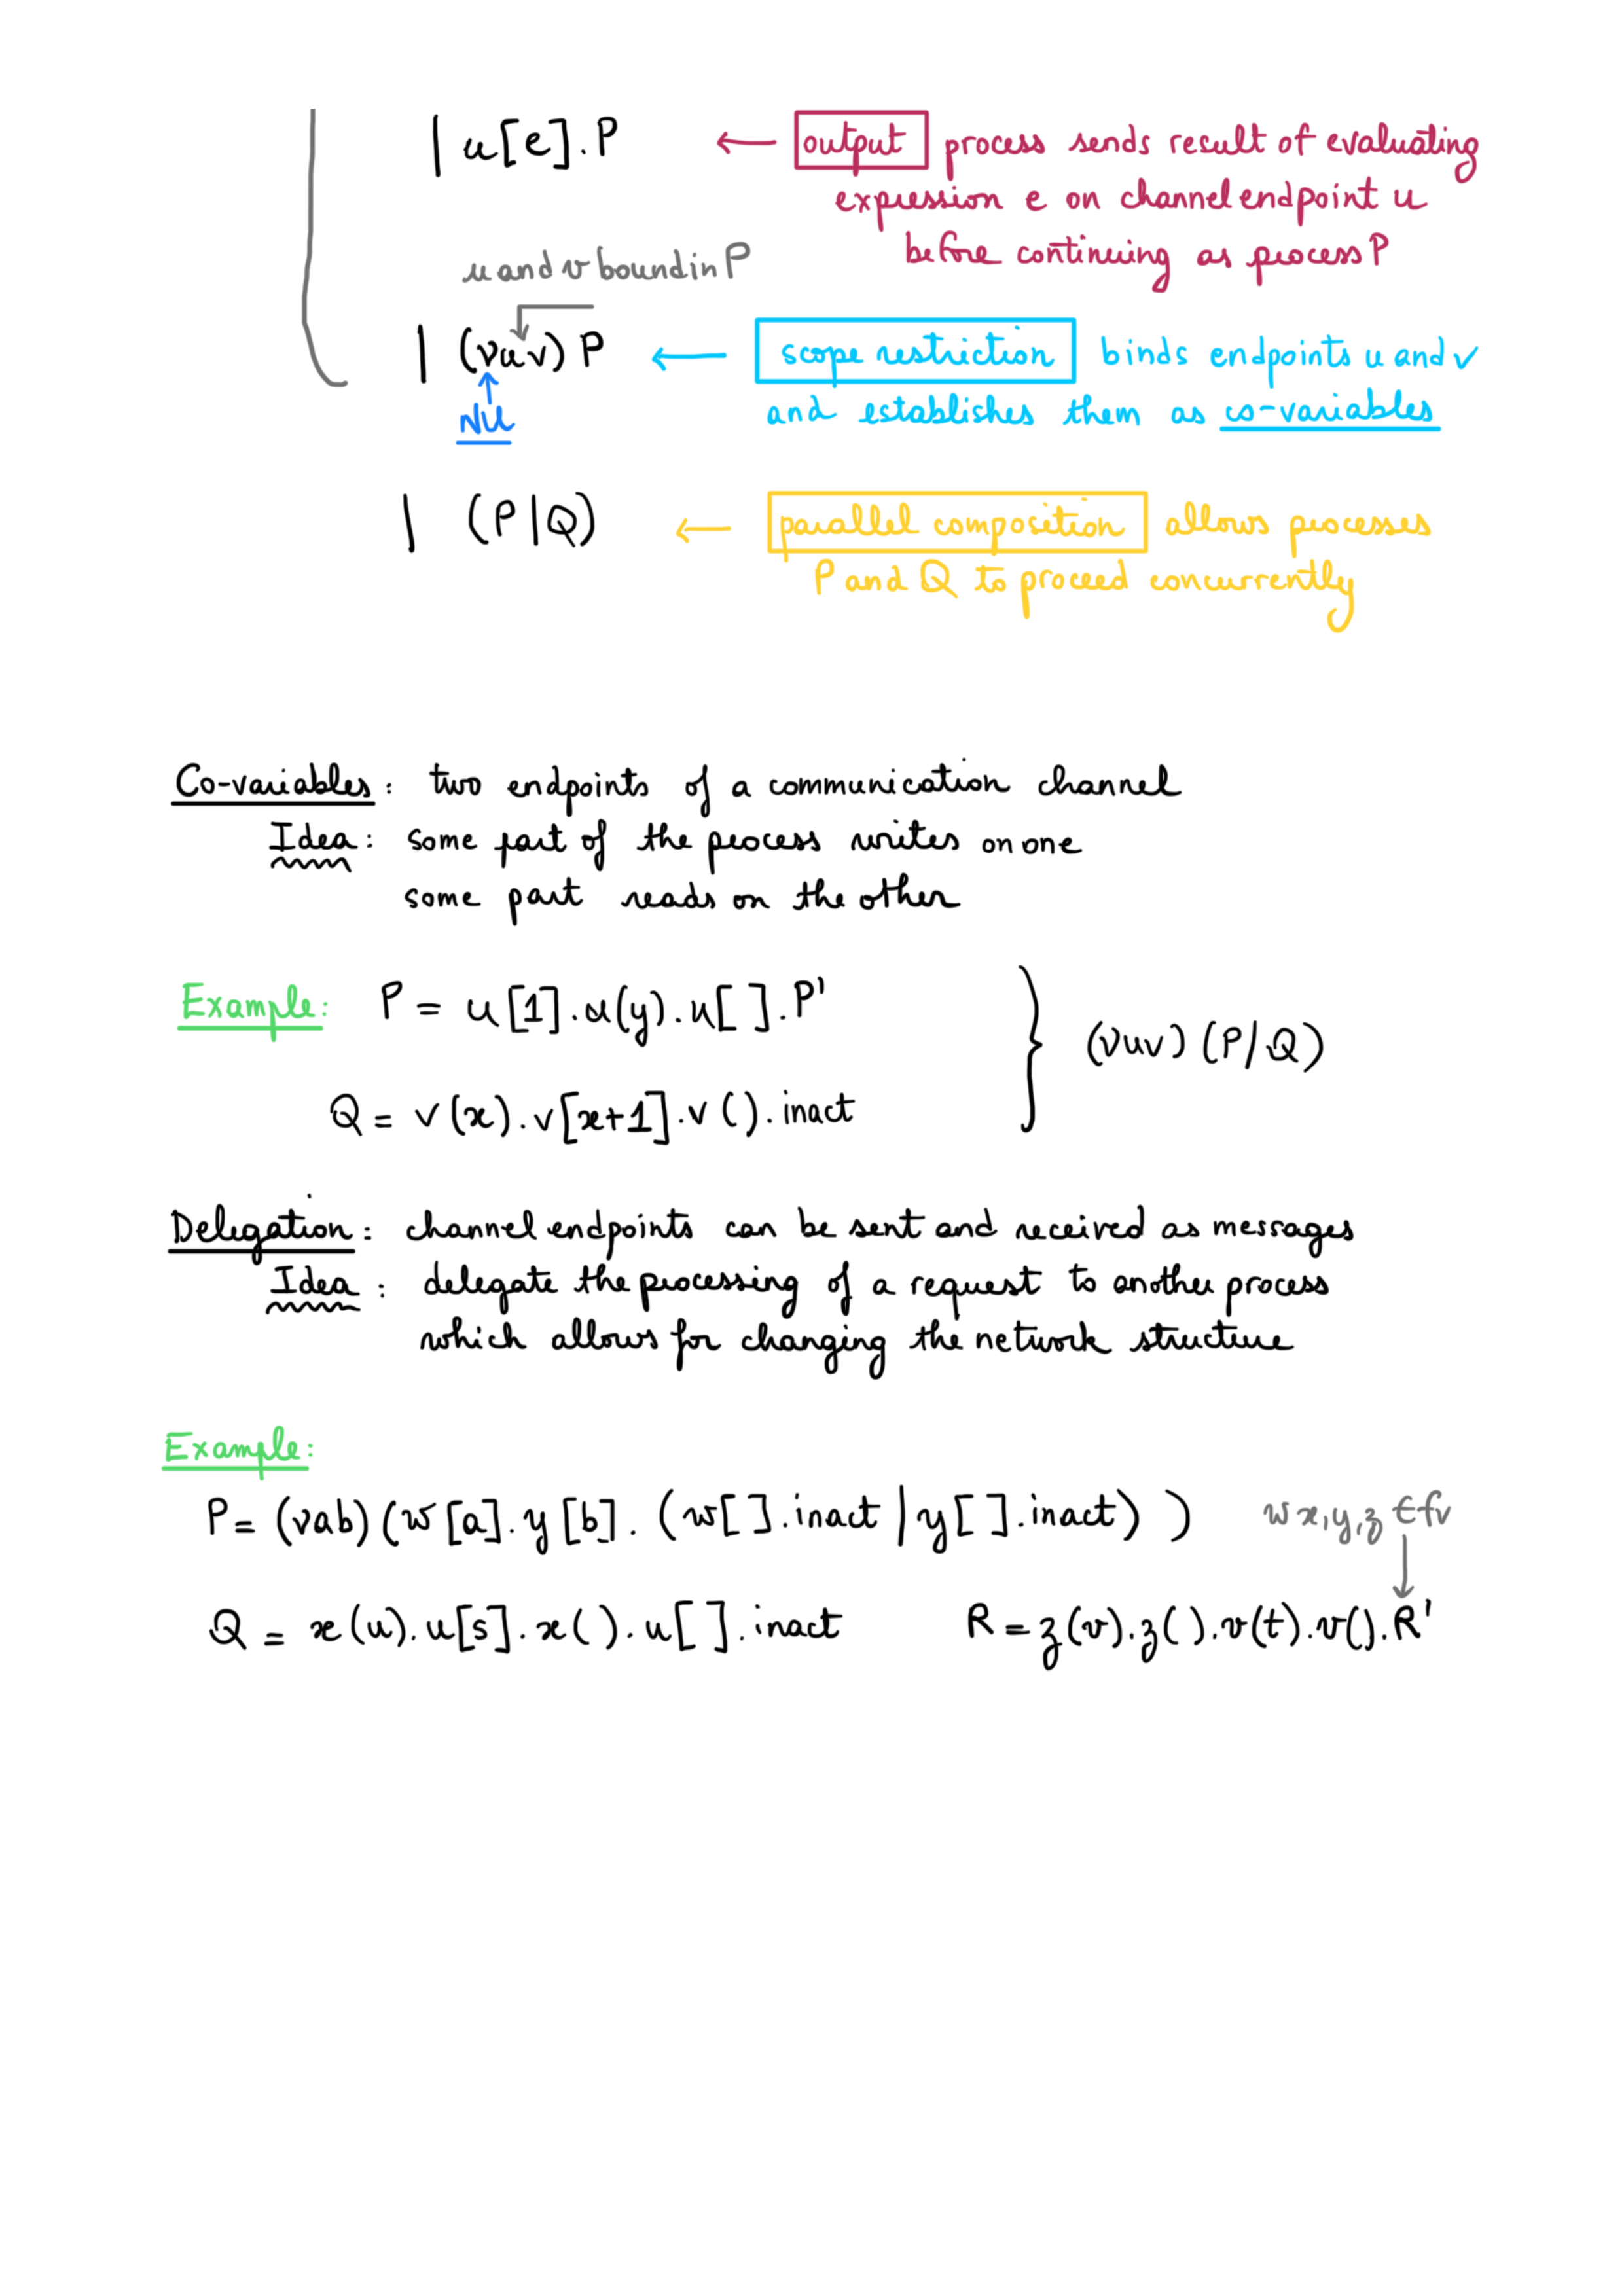 | u[e].P ← output process sends result of evaluating
expression e on channel endpoint u
before continuing as process P
u and v bound in P
| (νuv) P ← scope restriction binds endpoints u and v
nu
and establishes them as co-variables
| (P|Q) ← parallel composition allows processes
P and Q to proceed concurrently
Co-variables: two endpoints of a communication channel
Idea: some part of the process writes on one
some part reads on the other
Example: P = u[1].u(y).u[ ].P'
(νuv) (P|Q)
Q = v(x).v[x+1].v().inact
Delegation: channel endpoints can be sent and received as messages
Idea: delegate the processing of a request to another process
which allows for changing the network structure
Example:
P = (νab)(w[a].y[b].(w[ ].inact | y[ ].inact))
w x,y,z ∈ fv
Q = x(u).u[s].x().u[ ].inact R = z(v).z().v(t).v().R'